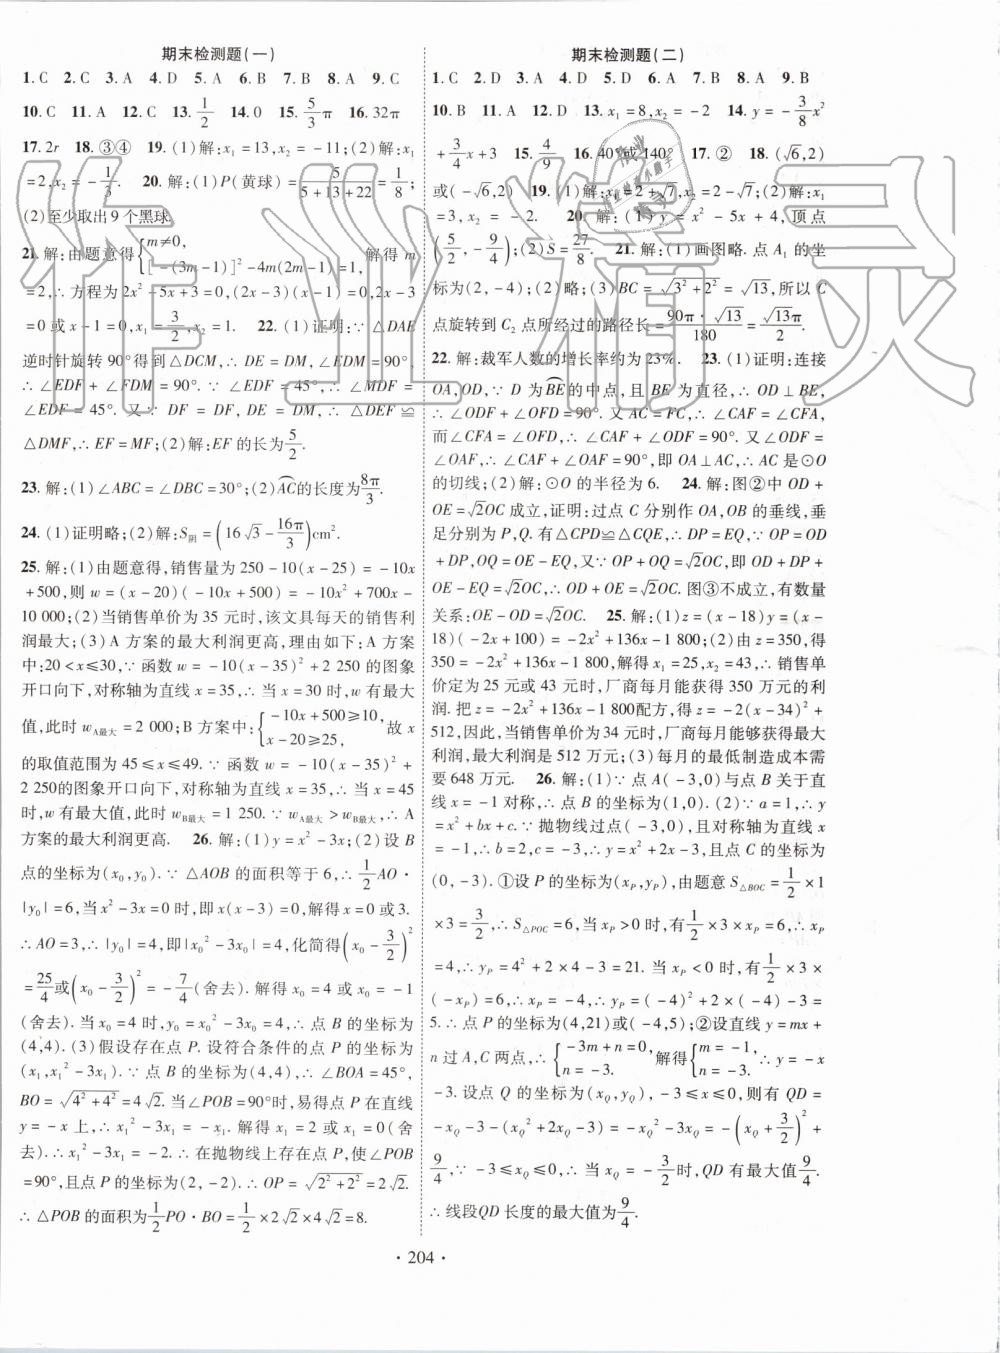 期末检测题(一)
1. C 2. C 3. A 4. D 5. A 6. B 7. B 8. A 9. C
10. C 11. A 12. C 13. 1/2 14. 0 15. 5/3 π 16. 32π
17. 2r 18. ③④ 19. (1)解:x₁=13,x₂=-11;(2)解:x₁
=2,x₂=-1/3. 20. 解:(1)P(黄球)=5/(5+13+22)=1/8;
(2)至少取出9个黑球.
21. 解:由题意得{m≠0, [-(3m-1)]²-4m(2m-1)=1, 解得 m
=2,∴方程为2x²-5x+3=0,(2x-3)(x-1)=0,2x-3
=0或x-1=0,x₁=3/2,x₂=1. 22. (1)证明:∵△DAE
逆时针旋转90°得到△DCM,∴DE=DM,∠EDM=90°,
∴∠EDF+∠FDM=90°.∵∠EDF=45°,∴∠MDF=
∠EDF=45°.又∵DF=DF,DE=DM,∴△DEF≌
△DMF,∴EF=MF;(2)解:EF的长为5/2.
23. 解:(1)∠ABC=∠DBC=30°;(2)AC⌒的长度为8π/3.
24. (1)证明略;(2)解:S阴=(16√3-16π/3)cm².
25. 解:(1)由题意得,销售量为250-10(x-25)=-10x
+500,则w=(x-20)(-10x+500)=-10x²+700x-
10 000;(2)当销售单价为35元时,该文具每天的销售利
润最大;(3)A方案的最大利润更高,理由如下:A方案
中:20<x≤30,∵函数w=-10(x-35)²+2 250的图象
开口向下,对称轴为直线x=35,∴当x=30时,w有最大
值,此时wA最大=2 000;B方案中:{-10x+500≥10, x-20≥25, 故x
的取值范围为45≤x≤49.∵函数w=-10(x-35)²+
2 250的图象开口向下,对称轴为直线x=35,∴当x=45
时,w有最大值,此时wB最大=1 250.∵wA最大>wB最大,∴A
方案的最大利润更高. 26. 解:(1)y=x²-3x;(2)设B
点的坐标为(x₀,y₀).∵△AOB的面积等于6,∴1/2 AO·
|y₀|=6,当x²-3x=0时,即x(x-3)=0,解得x=0或3.
∴AO=3,∴|y₀|=4,即|x₀²-3x₀|=4,化简得(x₀-3/2)²
=25/4或(x₀-3/2)²=-7/4(舍去).解得x₀=4或x₀=-1
(舍去).当x₀=4时,y₀=x₀²-3x₀=4,∴点B的坐标为
(4,4).(3)假设存在点P.设符合条件的点P的坐标为
(x₁,x₁²-3x₁).∵点B的坐标为(4,4),∴∠BOA=45°,
BO=√(4²+4²)=4√2.当∠POB=90°时,易得点P在直线
y=-x上,∴x₁²-3x₁=-x₁.解得x₁=2或x₁=0(舍
去).∴x₁²-3x₁=-2.∴在抛物线上存在点P,使∠POB
=90°,且点P的坐标为(2,-2).∴OP=√(2²+2²)=2√2.
∴△POB的面积为1/2 PO·BO=1/2×2√2×4√2=8.
期末检测题(二)
1. C 2. C 3. D 4. D 5. D 6. A 7. B 8. A 9. B
10. B 11. A 12. D 13. x₁=8,x₂=-2 14. y=-3/8 x²
+3/4 x+3 15. 4/9 16. 40°或140° 17. ② 18. (√6,2)
或(-√6,2) 19. (1)解:x₁=2+√7,x₂=2-√7;(2)解:x₁
=3,x₂=-2. 20. 解:(1)y=x²-5x+4,顶点
(5/2,-9/4);(2)S=27/8. 21. 解:(1)画图略.点A₁的坐
标为(2,-4);(2)略;(3)BC=√(3²+2²)=√13,所以C
点旋转到C₂点所经过的路径长=90π·√13/180=√13π/2.
22. 解:裁军人数的增长率约为23%. 23. (1)证明:连接
OA,OD,∵D为BE⌒的中点,且BE为直径,∴OD⊥BE,
∴∠ODF+∠OFD=90°.又AC=FC,∴∠CAF=∠CFA,
而∠CFA=∠OFD,∴∠CAF+∠ODF=90°.又∠ODF=
∠OAF,∴∠CAF+∠OAF=90°,即OA⊥AC,∴AC是⊙O
的切线;(2)解:⊙O的半径为6. 24. 解:图②中OD+
OE=√2OC成立,证明:过点C分别作OA,OB的垂线,垂
足分别为P,Q.有△CPD≌△CQE,∴DP=EQ,∵OP=OD
+DP,OQ=OE-EQ,又∵OP+OQ=√2OC,即OD+DP+
OE-EQ=√2OC,∴OD+OE=√2OC.图③不成立,有数量
关系:OE-OD=√2OC. 25. 解:(1)z=(x-18)y=(x-
18)(-2x+100)=-2x²+136x-1 800;(2)由z=350,得
350=-2x²+136x-1 800,解得x₁=25,x₂=43,∴销售单
价定为25元或43元时,厂商每月能获得350万元的利
润.把z=-2x²+136x-1 800配方,得z=-2(x-34)²+
512,因此,当销售单价为34元时,每月能够获得最大
利润,最大利润是512万元;(3)每月的最低制造成本需
要648万元. 26. 解:(1)∵点A(-3,0)与点B关于直
线x=-1对称,∴点B的坐标为(1,0).(2)∵a=1,∴y
=x²+bx+c.∵抛物线过点(-3,0),且对称轴为直线x
=-1,∴b=2,c=-3,∴y=x²+2x-3,且点C的坐标为
(0,-3).①设P的坐标为(xP,yP),由题意S△BOC=1/2×1
×3=3/2,∴S△POC=6,当xP>0时,有1/2×3×xP=6,∴xP
=4,∴yP=4²+2×4-3=21.当xP<0时,有1/2×3×
(-xP)=6,∴xP=-4,∴yP=(-4)²+2×(-4)-3=
5.∴点P的坐标为(4,21)或(-4,5);②设直线y=mx+
n过A,C两点,∴{-3m+n=0, n=-3. 解得{m=-1, n=-3. ∴y=-x
-3.设点Q的坐标为(xQ,yQ),-3≤x≤0,则有QD=
-xQ-3-(xQ²+2xQ-3)=-xQ²-3xQ=-(xQ+3/2)²+
9/4,∵-3≤xQ≤0,∴当xQ=-3/2时,QD有最大值9/4.
∴线段QD长度的最大值为9/4.
· 204 ·
作业精灵